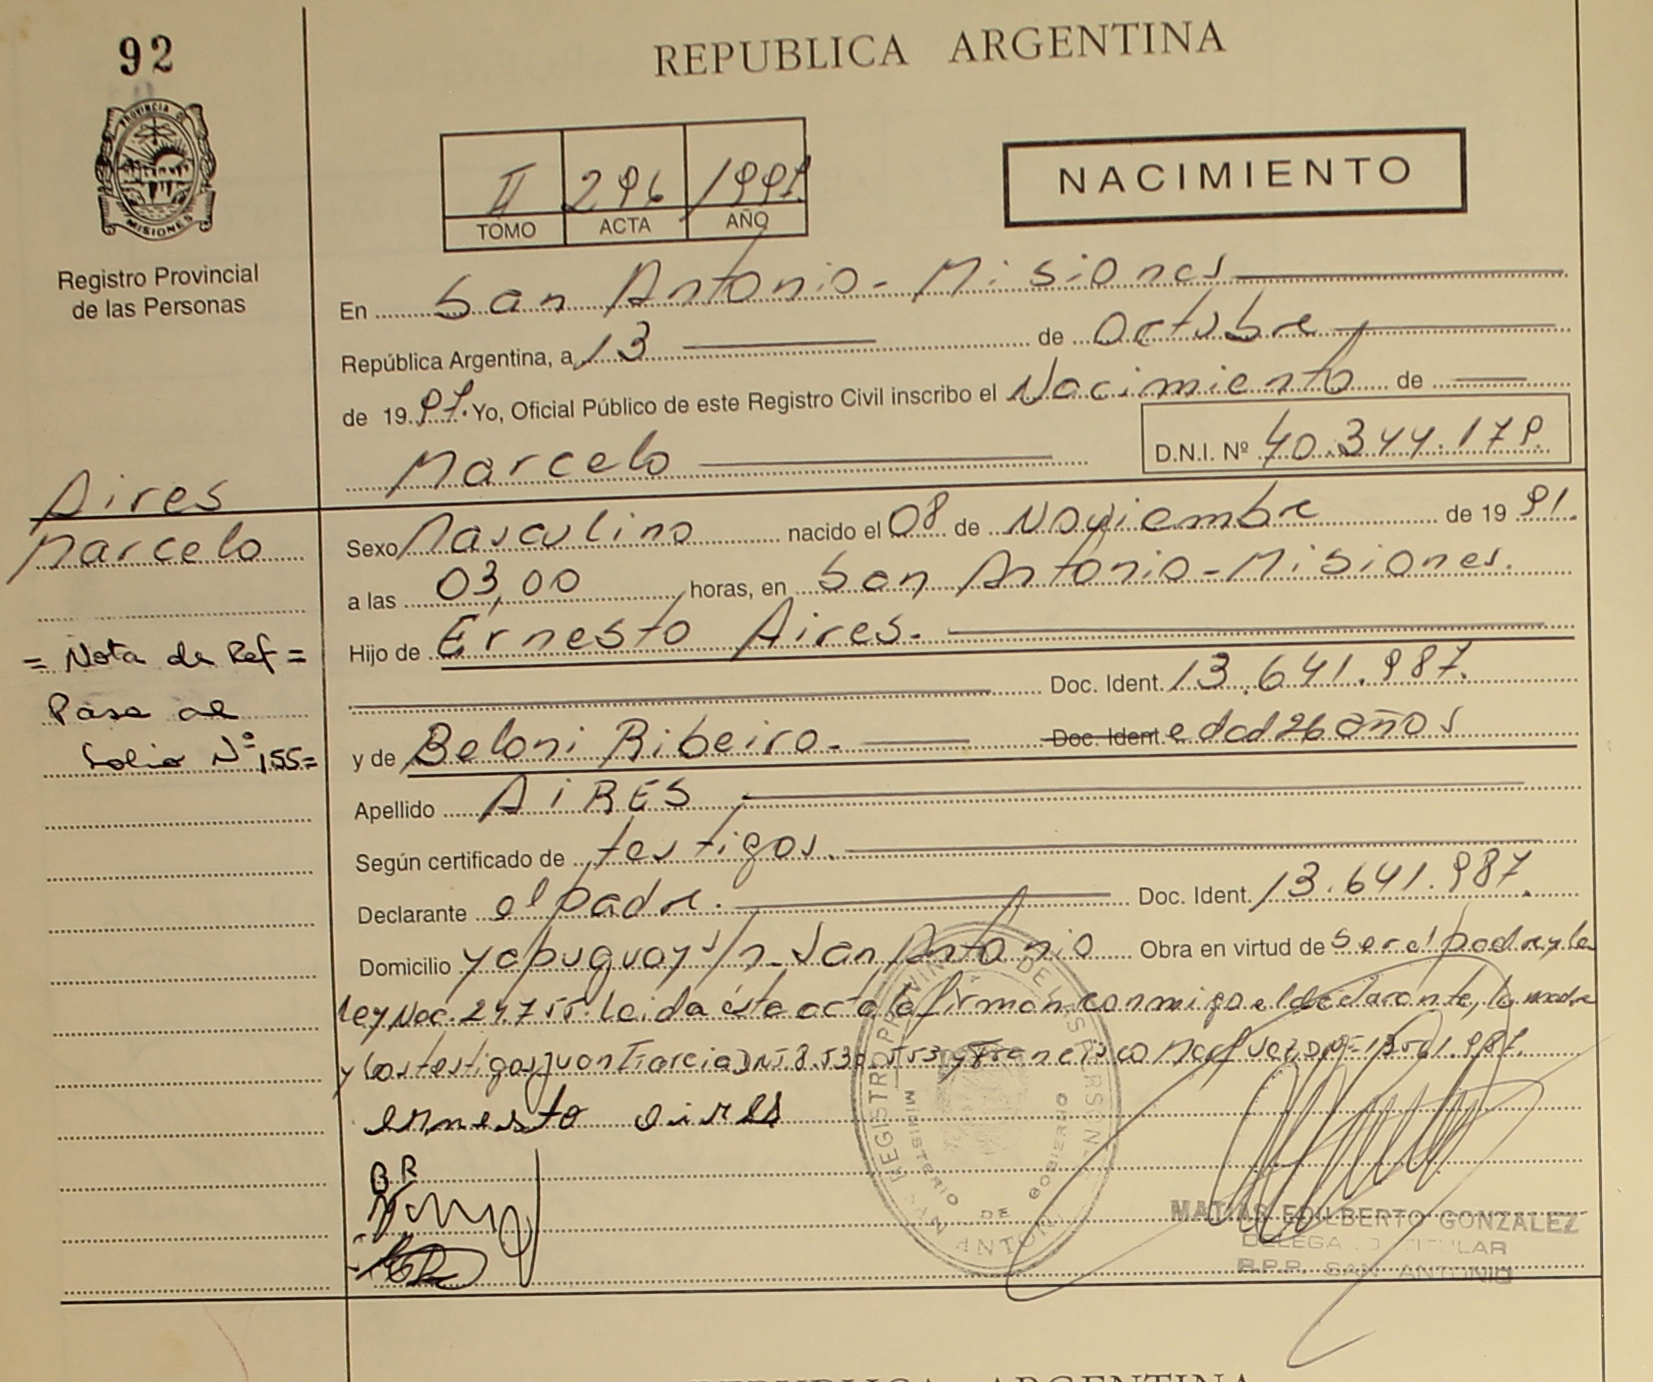 92
REPUBLICA ARGENTINA
PROVINCIA DE
MISIONES
Registro Provincial
de las Personas
II 296 1997
TOMO ACTA AÑO
NACIMIENTO
En San Antonio - Misiones
República Argentina, a 13 de Octubre
de 19 97. Yo, Oficial Público de este Registro Civil inscribo el Nacimiento de
Marcelo
D.N.I. Nº 40.344.179.
Aires
Marcelo
Sexo Masculino nacido el 08 de Noviembre de 19 91.
a las 03,00 horas, en San Antonio - Misiones.
= Nota de Ref =
Pasa al
folio Nº 155=
Hijo de Ernesto Aires.
Doc. Ident. 13.641.987.
y de Beloni Ribeiro. Doc. Ident edad 26 años
Apellido AIRES
Según certificado de testigos.
Declarante el padre. Doc. Ident. 13.641.987.
Domicilio yapuguay s/n - San Antonio Obra en virtud de ser el padre y la
ley Nac. 24755. Leida ésta acta la firman conmigo el declarante, la madre
y los testigos Juan Garcia DNI 8.530.553 y Francisco
ernesto aires
B R
REGISTRO PROVINCIAL DE LAS PERSONAS
MINISTERIO DE GOBIERNO
SAN ANTONIO
MATIAS EDILBERTO GONZALEZ
DELEGADO TITULAR
R.P.P. SAN ANTONIO
REPUBLICA ARGENTINA